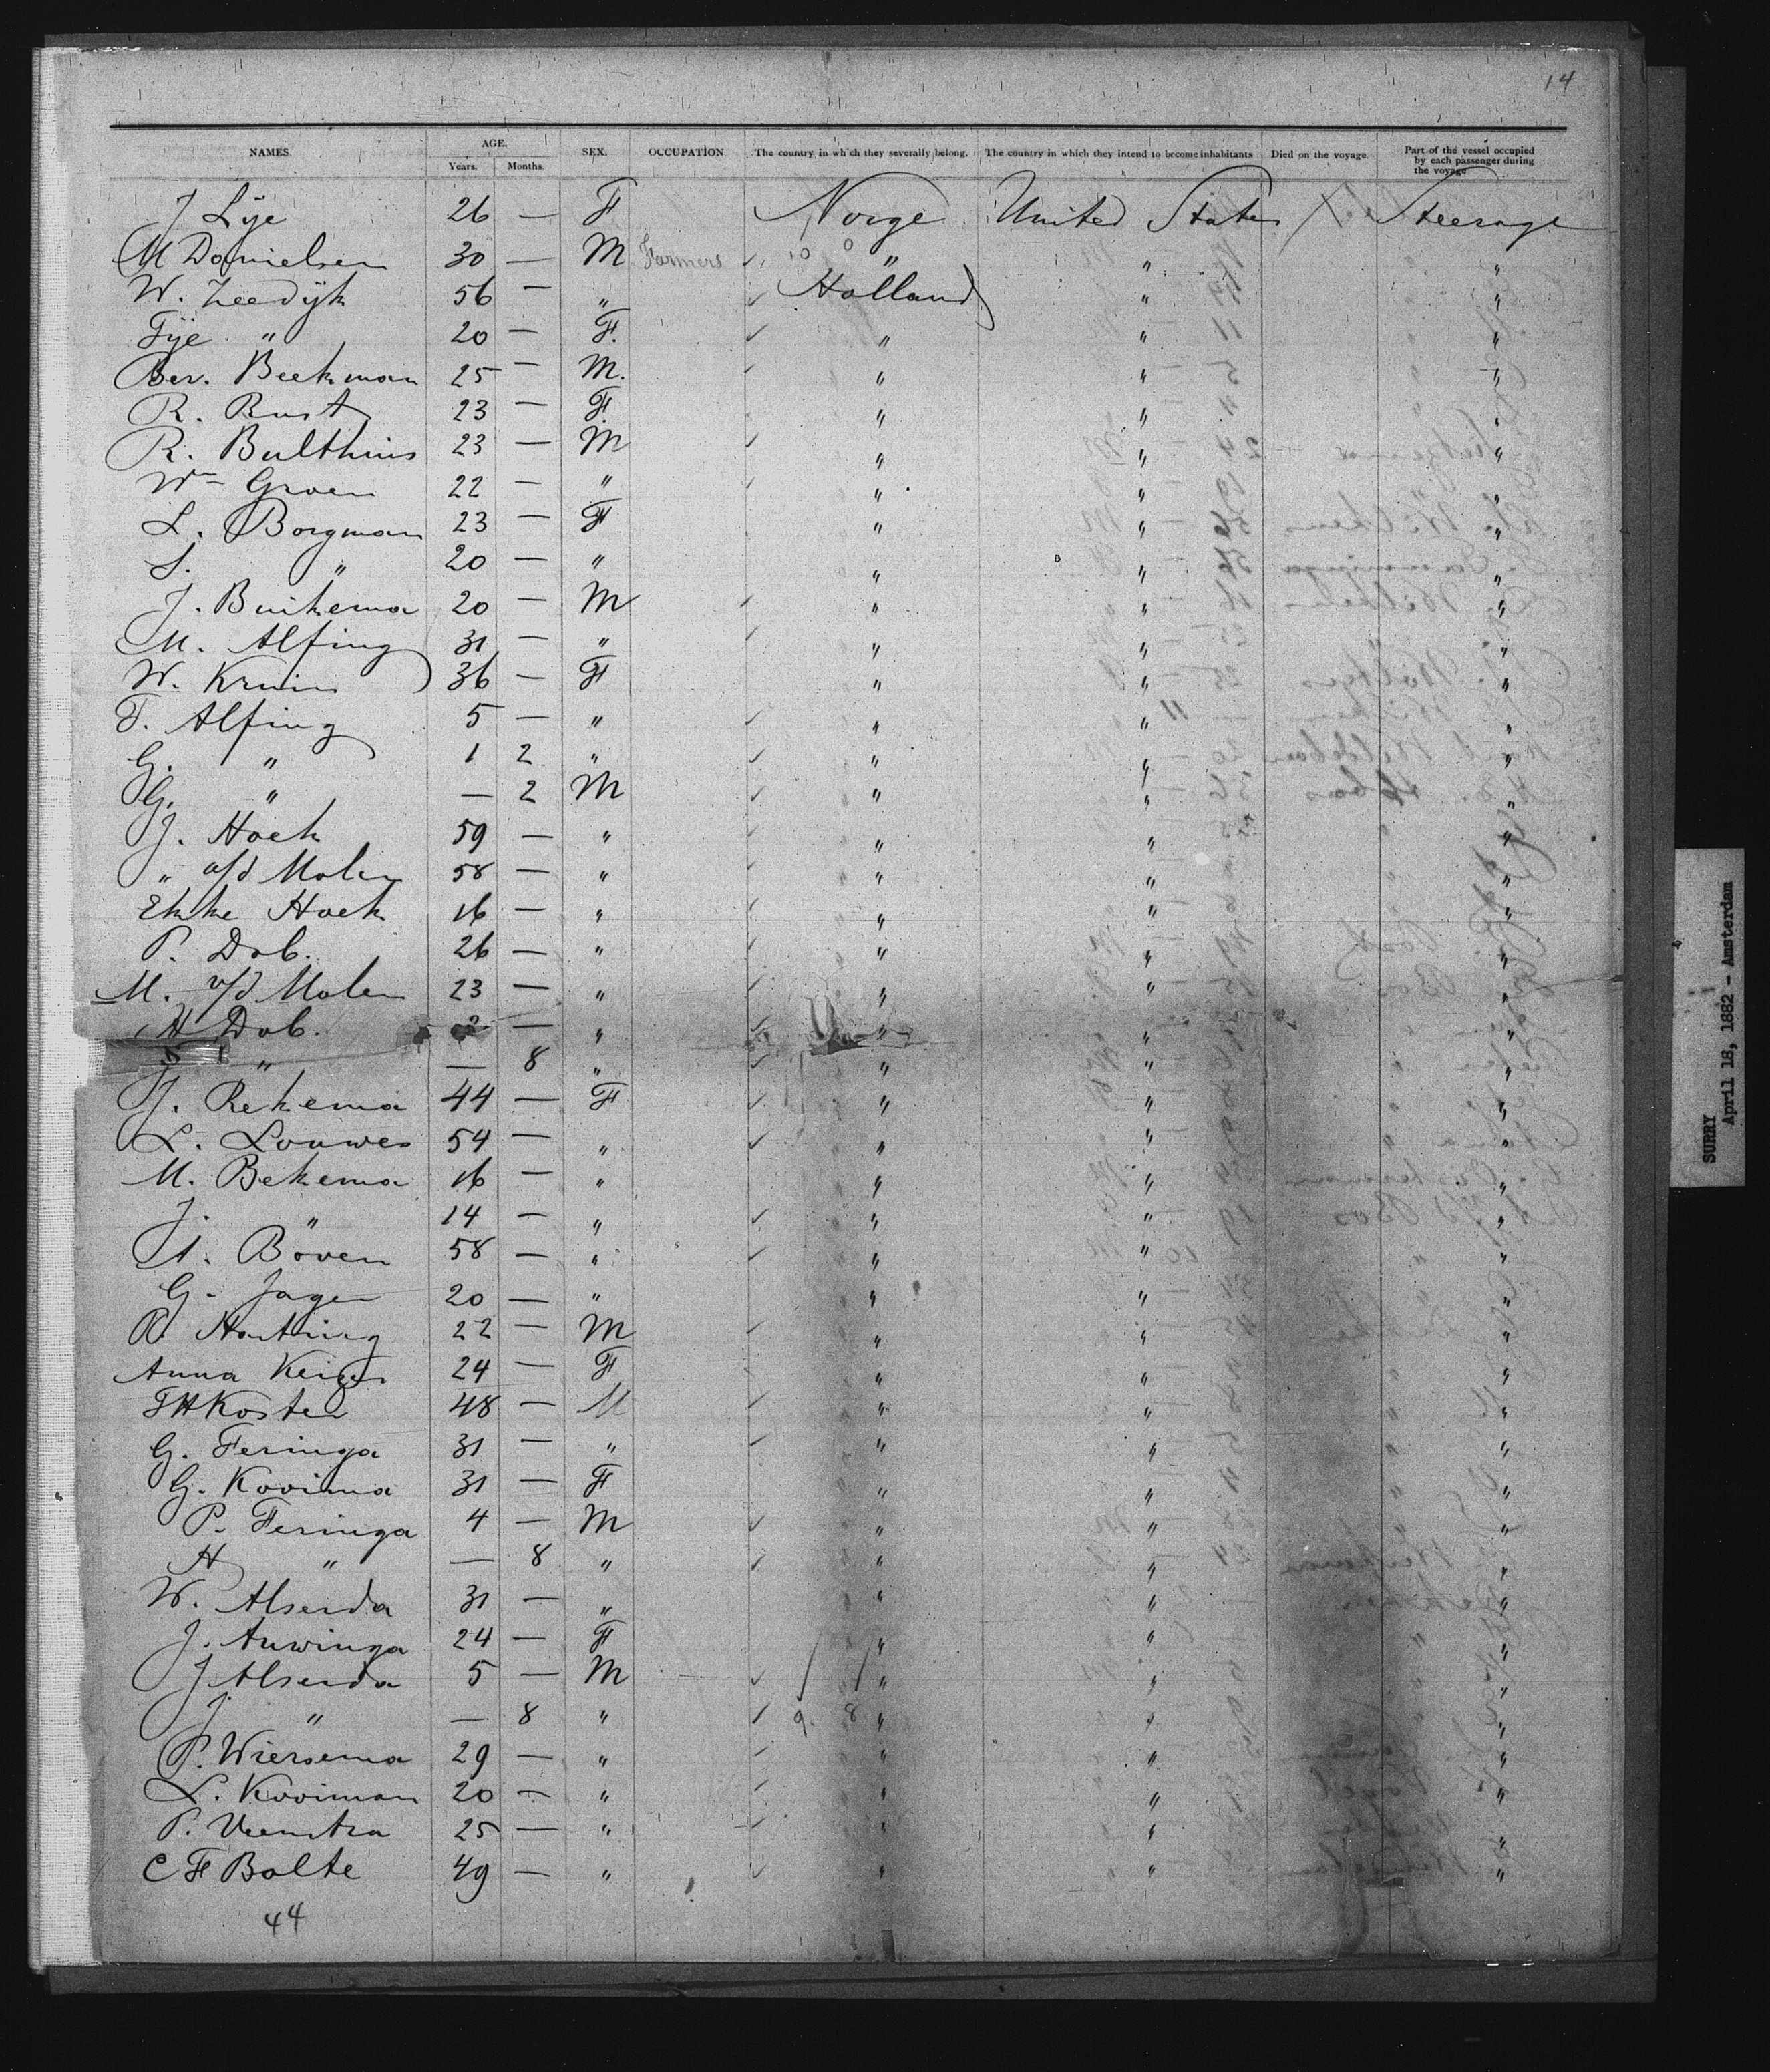 14
NAMES. AGE. Years. Months. SEX. OCCUPATION The country in which they severally belong. The country in which they intend to become inhabitants Died on the voyage. Part of the vessel occupied by each passenger during the voyage
J Lije 26 — F Norge United States Steerage
M Danielsen 30 — M Farmers " " "
W. Zeedijk 56 — " Holland " "
Fije " 20 — F. " " "
Ber. Beekman 25 — M. " " "
R. Rust 23 — F. " " "
R. Bulthuis 23 — M " " "
Wm Groen 22 — " " " "
L. Borgman 23 — F " " "
S. " 20 — " " " "
J. Buikema 20 — M " " "
M. Alfing 31 — " " " "
W. Kruin 36 — F " " "
T. Alfing 5 — " " " "
G. " 1 2 " " " "
G. " — 2 M " " "
J. Hoek 59 — " " " "
" v/d Molen 58 — " " " "
Ekke Hoek 16 — " " " "
P. Dob. 26 — " " " "
M. v/d Molen 23 — " " " "
H Dob. 2 — " " " "
" — 8 " " " "
J. Rekema 44 — F " " "
L. Louwes 54 — " " " "
M. Bekema 16 — " " " "
J. " 14 — " " " "
A. Boven 58 — " " " "
G. Jager 20 — " " " "
R. Hontving 22 — M " " "
Anna 24 — F " " "
F H Koster 48 — M " " "
G. Feringa 31 — " " " "
G. Kooima 31 — F " " "
P. Feringa 4 — M " " "
H " — 8 " " " "
W. Alserda 31 — " " " "
J. Auwinga 24 — F " " "
J Alserda 5 — M " " "
J. " — 8 " " " "
P. Wiersema 29 — " " " "
L. Kooiman 20 — " " " "
P. Veenstra 25 — " " " "
C F Bolte 49 — " " " "
44
SURRY
April 18, 1882 - Amsterdam